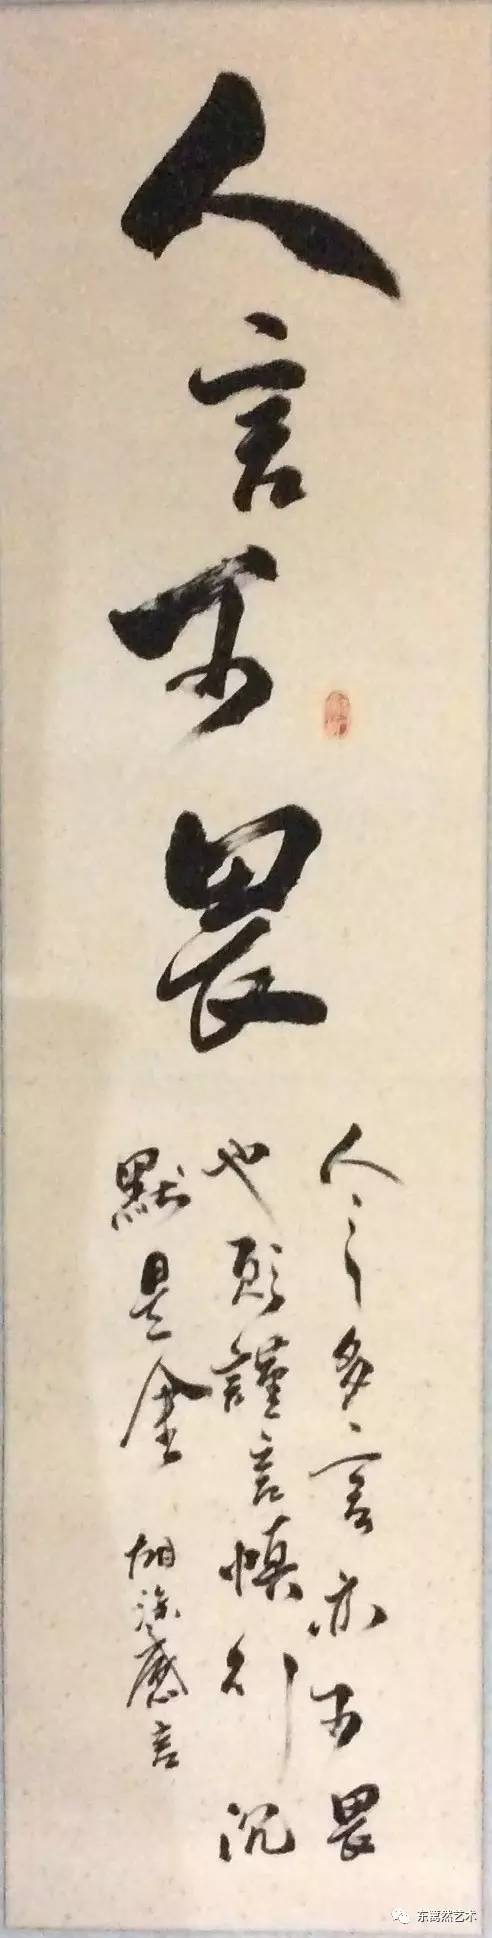 人言可畏
人之多言亦可畏
也願謹言慎行沉
默是金
胡感言
东然艺术